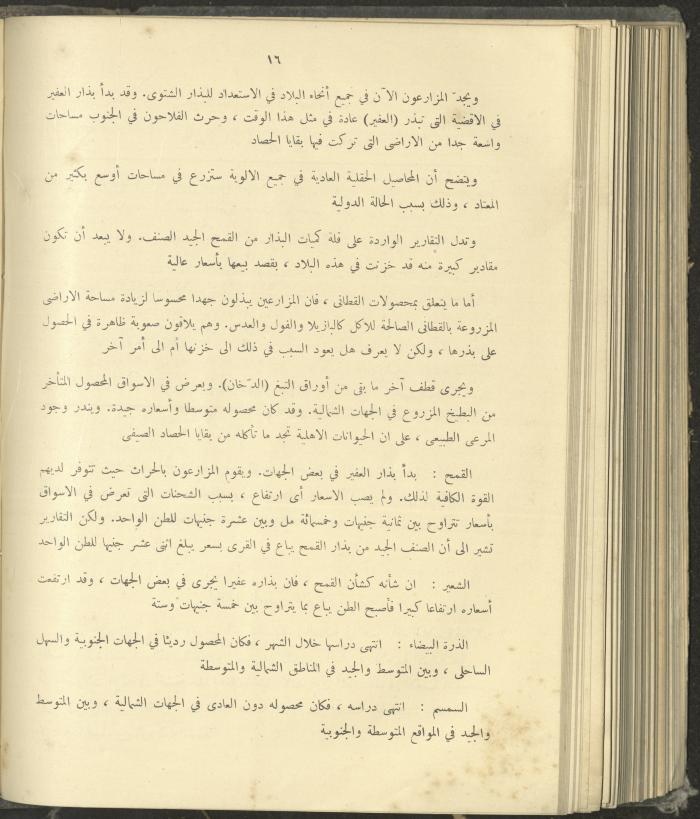 ١٦
ويجدّ المزارعون الآن في جميع أنحاء البلاد في الاستعداد للبذار الشتوى. وقد بدأ بذار العفير
في الاقضية التى تبذر (العفير) عادة في مثل هذا الوقت ، وحرث الفلاحون في الجنوب مساحات
واسعة جدا من الاراضى التى تركت فيها بقايا الحصاد
ويتضح أن المحاصيل الحقلية العادية في جميع الالوية ستزرع في مساحات أوسع بكثير من
المعتاد ، وذلك بسبب الحالة الدولية
وتدل التقارير الواردة على قلة كميات البذار من القمح الجيد الصنف. ولا يبعد أن تكون
مقادير كبيرة منه قد خزنت في هذه البلاد ، بقصد بيعها بأسعار عالية
أما ما يتعلق بمحصولات القطانى ، فان المزارعين يبذلون جهدا محسوسا لزيادة مساحة الاراضى
المزروعة بالقطانى الصالحة للاكل كالبازيلا والفول والعدس. وهم يلاقون صعوبة ظاهرة في الحصول
على بذرها ، ولكن لا يعرف هل يعود السبب في ذلك الى خزنها أم الى أمر آخر
ويجرى قطف آخر ما بقى من أوراق التبغ (الدخان). ويعرض في الاسواق المحصول المتأخر
من البطيخ المزروع في الجهات الشمالية. وقد كان محصوله متوسطا وأسعاره جيدة. ويندر وجود
المرعى الطبيعى ، على ان الحيوانات الاهلية تجد ما تأكله من بقايا الحصاد الصيفى
القمح : بدأ بذار العفير في بعض الجهات. ويقوم المزارعون بالحراث حيث تتوفر لديهم
القوة الكافية لذلك. ولم يصب الاسعار أى ارتفاع ، بسبب الشحنات التى تعرض في الاسواق
بأسعار تتراوح بين ثمانية جنيهات وخمسمائة مل وبين عشرة جنيهات للطن الواحد. ولكن التقارير
تشير الى أن الصنف الجيد من بذار القمح يباع في القرى بسعر يبلغ اثنى عشر جنيها للطن الواحد
الشعير : ان شأنه كشأن القمح ، فان بذاره عفيرا يجرى في بعض الجهات ، وقد ارتفعت
أسعاره ارتفاعا كبيرا فأصبح الطن يباع بما يتراوح بين خمسة جنيهات وستة
الذرة البيضاء : انتهى دراسها خلال الشهر ، فكان المحصول رديئا في الجهات الجنوبية والسهل
الساحلى ، وبين المتوسط والجيد في المناطق الشمالية والمتوسطة
السمسم : انتهى دراسه ، فكان محصوله دون العادى في الجهات الشمالية ، وبين المتوسط
والجيد في المواقع المتوسطة والجنوبية